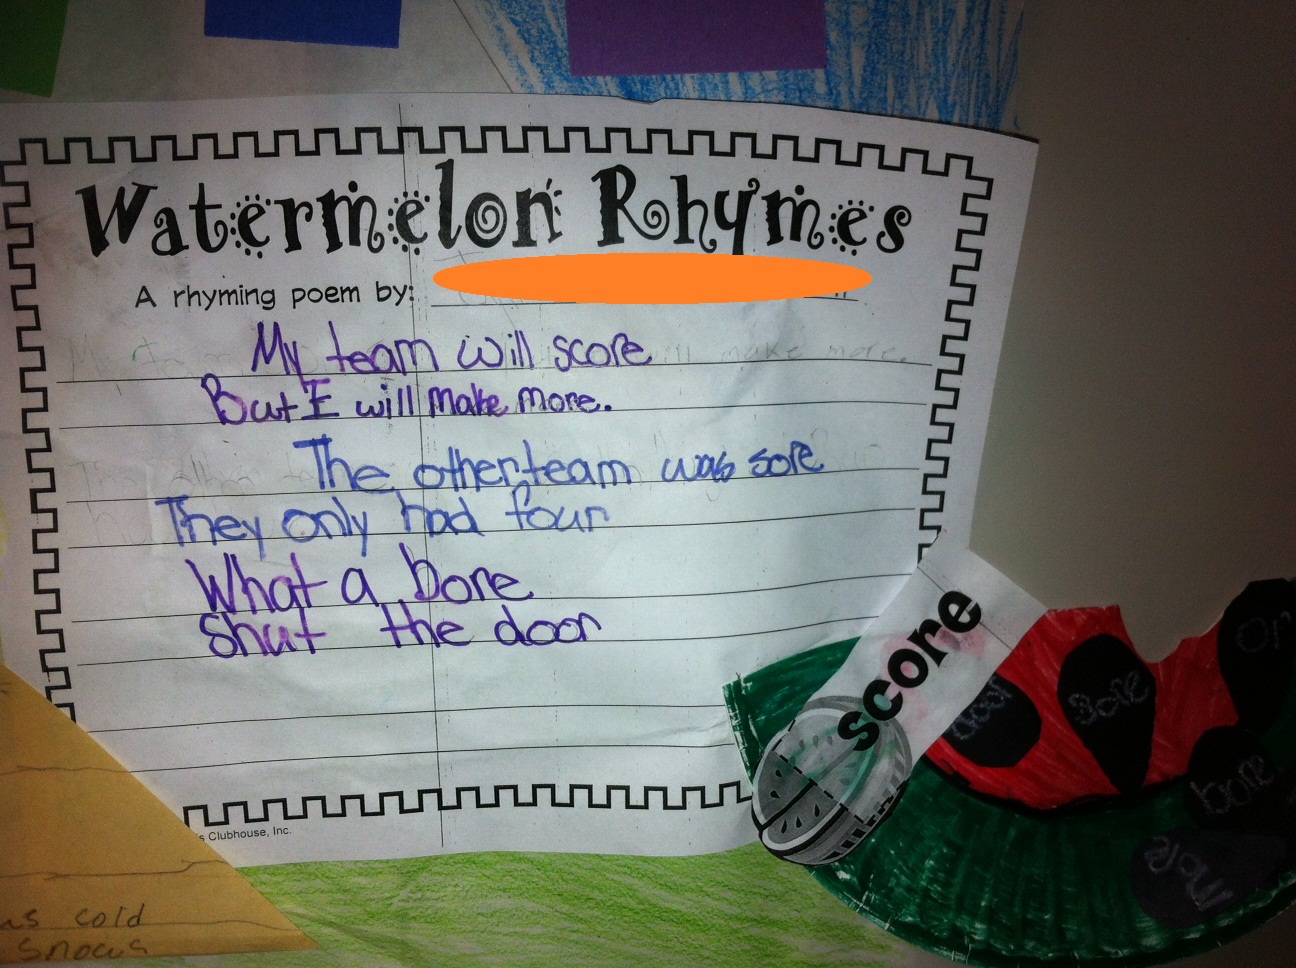 Watermelon Rhymes
A rhyming poem by:
My team will score
But I will make more.
The other team was sore
They only had four
What a bore
Shut the door
score
Door
Bore
bore
More
s Clubhouse, Inc.
as cold
snows